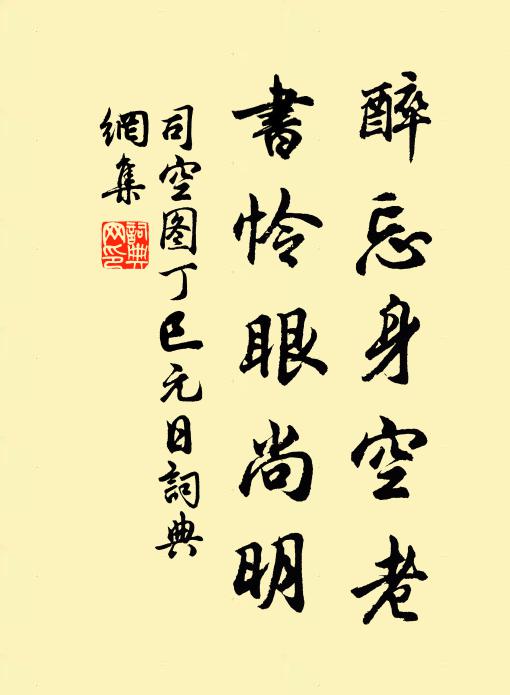 醉忘身空老
書怜眼尚明
司空图丁巳元日詞典
網集
詞典
网印